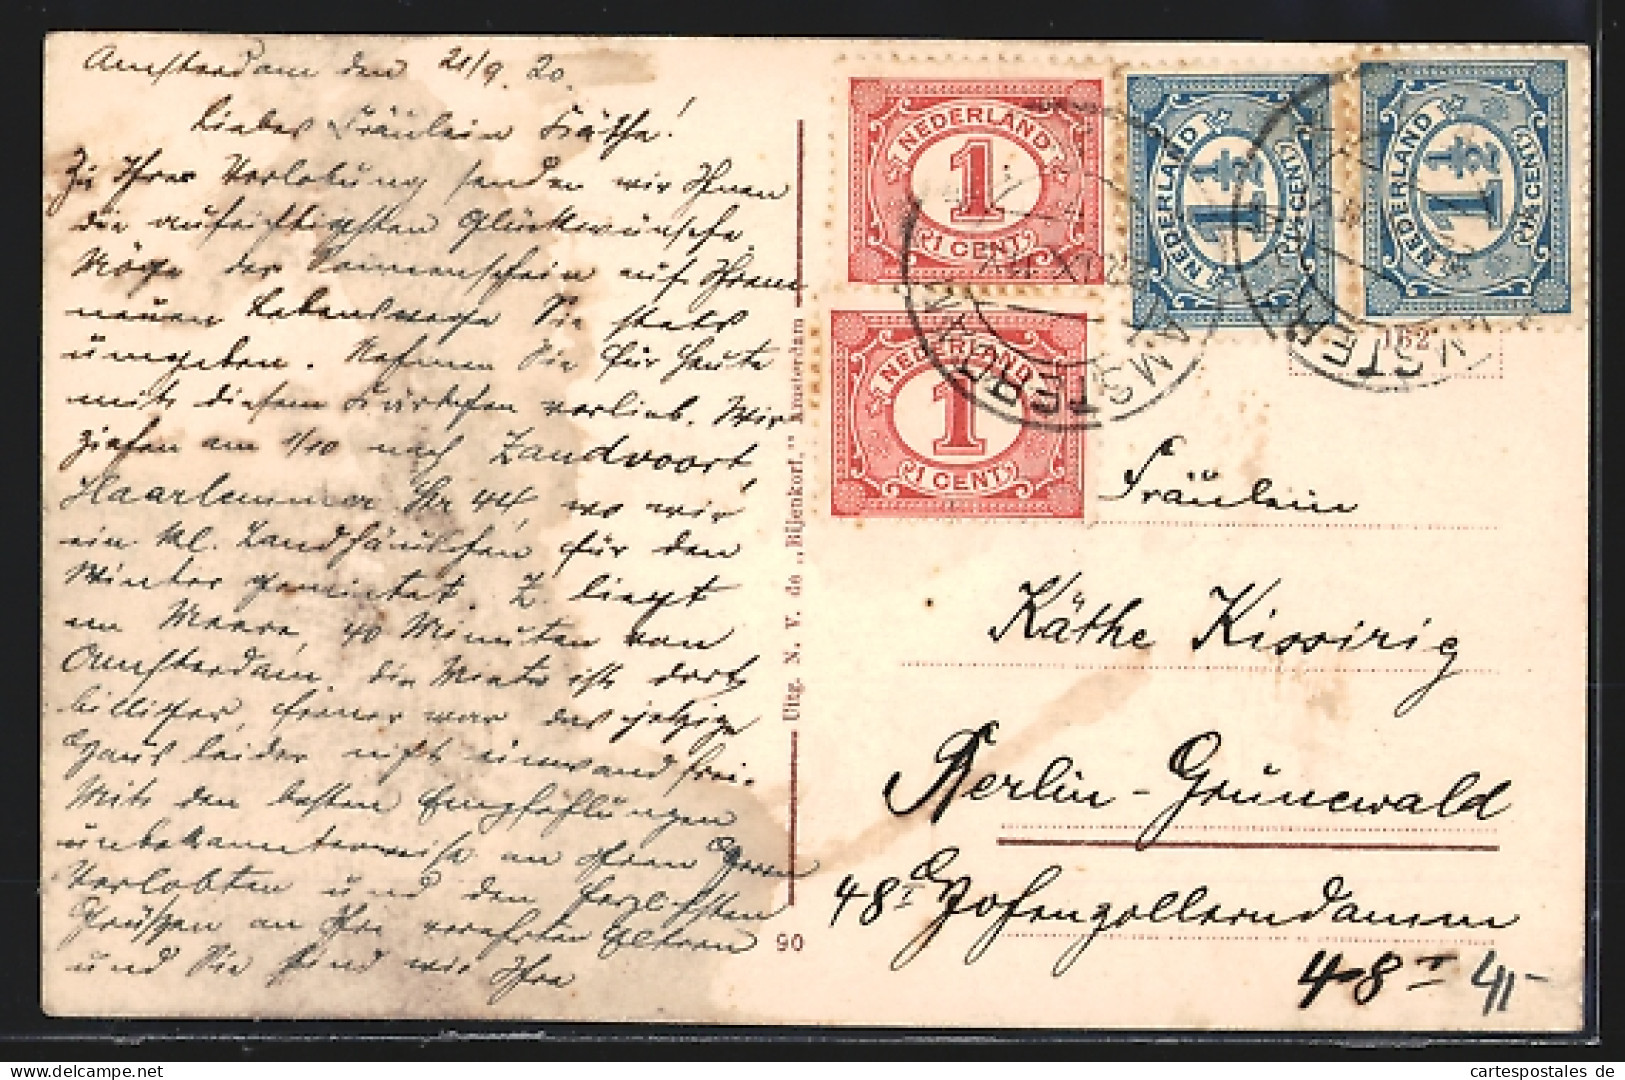 Amsterdam den 21/9. 20.
Liebes Fräulein Käthe!
Zu Ihrer Verlobung senden wir Ihnen
die aufrichtigsten Glückwünsche.
Möge der Sonnenschein auf Ihrem
neuen Lebenswege Sie stets
umgeben. Nehmen Sie für heute
mit diesem Kärtchen vorlieb. Wir
ziehen am 1/10 nach Zandvoort,
Haarlemmer Str 44, wo wir
ein kl. Landhäuschen für den
Winter gemietet. Z. liegt
am Meere, 40 Minuten von
Amsterdam, die Miete ist dort
billiger, ferner war das jetzige
Haus leider nicht einwandfrei.
Mit den besten Empfehlungen
unbekannterweise an Ihren Herrn
Verlobten und den herzlichsten
Grüßen an Ihre verehrten Eltern
und Sie sind wir Ihre
Uitg. N. V. de „Bijenkorf," Amsterdam
90
NEDERLAND
1
1 CENT
NEDERLAND
1
1 CENT
NEDERLAND
1½
1½ CENT
NEDERLAND
1½
1½ CENT
AMSTERDAM
AMSTERDAM
162
Fräulein
Käthe Kissirig
Berlin-Grunewald
48I Hohenzollerndamm
48I 41-
cartespostales de